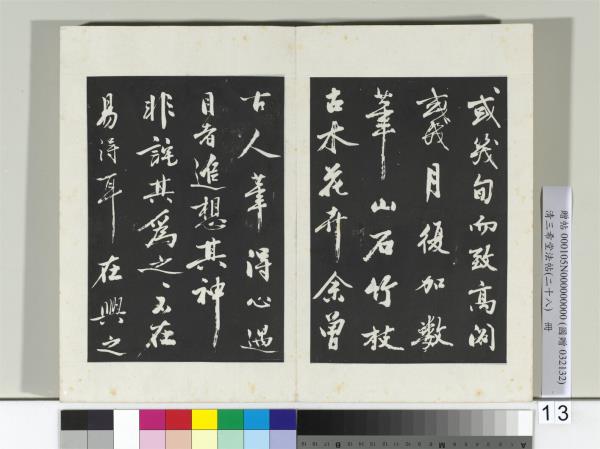 或幾旬而致高閣
或幾月復加數
筆山石竹枝
古木花卉余曾
古人筆得心遇
目者進想其神
非詫其為之、不在
易得耳在興之
贈帖 000105N000000000 (圖贈 032132)
清三希堂法帖(二十八) 冊
13